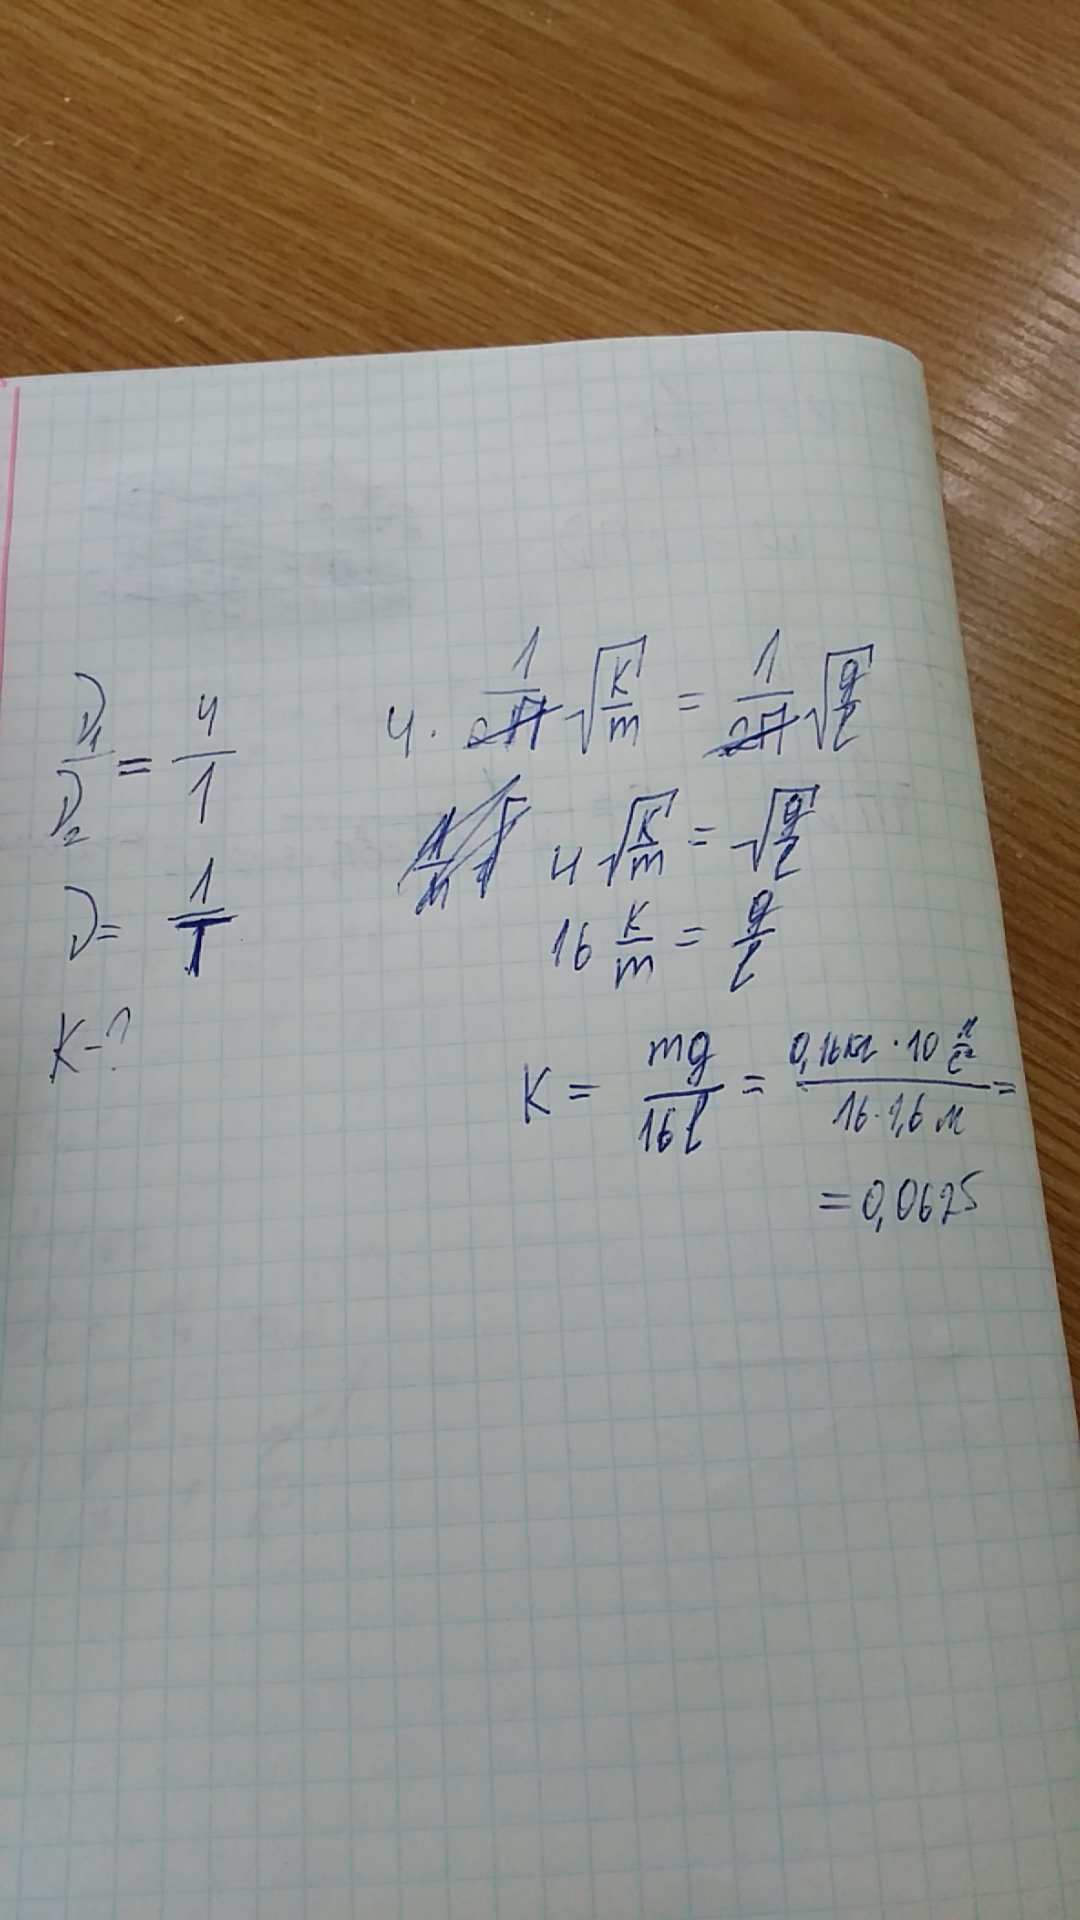 ν₁/ν₂ = 4/1
ν = 1/T
K - ?
4 · 1/2π √(k/m) = 1/2π √(g/l)
4 √(k/m) = √(g/l)
16 k/m = g/l
K = mg/16l = 0,16кг · 10 м/с² / 16 · 1,6 м =
= 0,0625